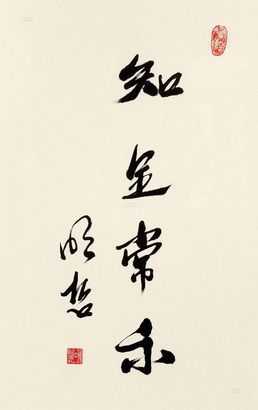 知足常乐
明哲